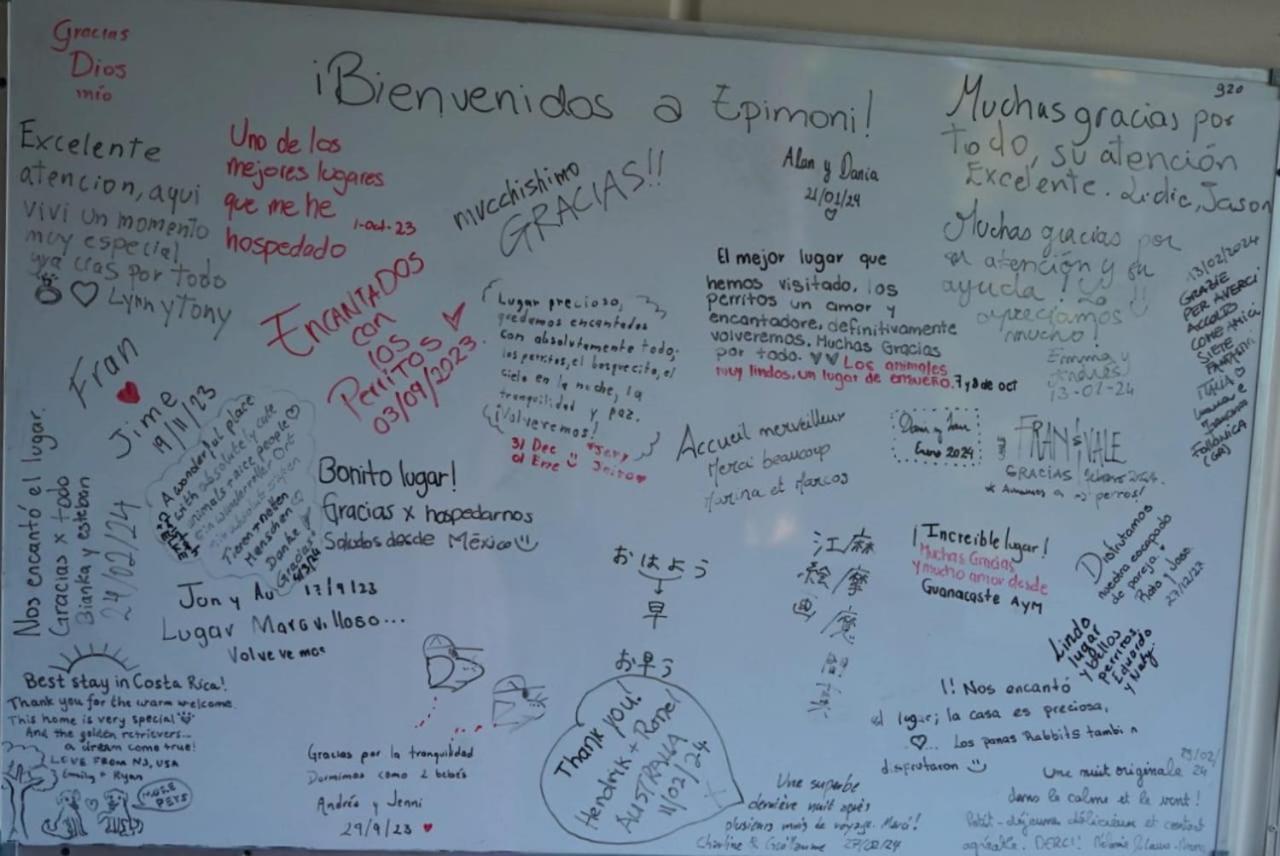 Gracias
Dios
mío
¡Bienvenidos a Epimoni!
920
Muchas gracias por
todo, su atención
Excelente. Lidic, Jason
Excelente
atencion, aqui
vivi un momento
muy especial
gracias por todo
Lynn y Tony
Uno de los
mejores lugares
que me he
hospedado
1-oct-23
mucchishimo
GRACIAS!!
Alan y Dania
21/01/24
Muchas gracias por
su atención y su
ayuda! Lo
apreciamos
mucho!
Emma y
Andrés
13-02-24
13/02/2024
GRAZIE
PER AVERCI
ACCOLTO
COME AMICI
SIETE
FANTASTICI
ITALIA
FOLLONICA
(GR)
ENCANTADOS
con
los
Perritos
03/09/2023
Lugar precioso,
quedamos encantados
con absolutamente todo;
los perritos, el bosquecito, el
cielo en la noche, la
tranquilidad y paz.
¡Volveremos!
31 Dec
01 Ene
El mejor lugar que
hemos visitado, los
perritos un amor y
encantadore, definitivamente
volveremos. Muchas Gracias
por todo. ♥♥ Los animales
muy lindos, un lugar de ensueño. 7 y 8 de oct
Fran
Jime
19/11/23
Nos encantó el lugar.
Gracias x todo
Bianka y esteban
24/02/24
A wonderful place
with absolutely cute
animals + nice people
Ein wundervoller Ort
mit absolut süßen
Tieren + netten
Menschen
Danke
Gracias
Bonito lugar!
Gracias x hospedarnos
Saludos desde México
Accueil merveilleux
Merci beaucoup
Marina et Marcos
Enero 2024
FRAN & VALE
GRACIAS, febrero 2024.
* Amamos a los perros!
Jon y Au 17/9/23
Lugar Maravilloso...
Volvevemos
おはよう
早
お早う
江麻
絵/摩
画/魔
¡Increible lugar!
Muchas Gracias
y mucho amor desde
Guanacaste AyM
Disfrutamos
nuestra escapada
de pareja
27/12/23
Lindo
lugar
y bellos
perritos,
Eduardo
y Naty.
Best stay in Costa Rica!
Thank you for the warm welcome.
This home is very special
And the golden retrievers...
a dream come true!
LOVE FROM NJ, USA
Emily + Ryan
MORE
PETS
Gracias por la tranquilidad
Dormimos como 2 bebés
Andrés y Jenni
29/9/23
Thank you!
Hendrik + Ronel
AUSTRALIA
11/02/24
¡! Nos encantó
el lugar; la casa es preciosa,
... Los panas Rabbits también
disfrutaron
Une superbe
dernière nuit après
plusieurs mois de voyage. Merci!
Charline & Guillaume 27/02/24
Une nuit originale
dans le calme et le vent!
Petit-déjeuner délicieux et contact
agréable. MERCI!